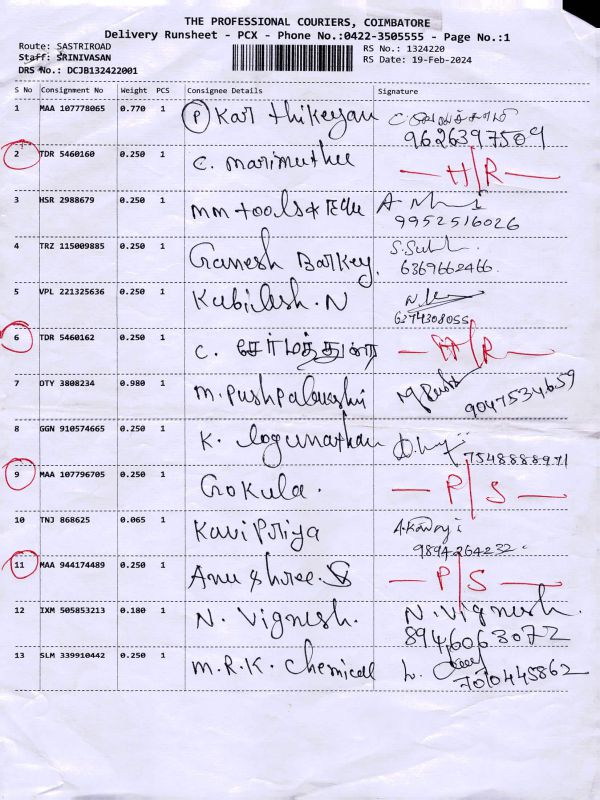 THE PROFESSIONAL COURIERS, COIMBATORE
Delivery Runsheet - PCX - Phone No.:0422-3505555 - Page No.:1
Route: SASTRIROAD
Staff: SRINIVASAN
DRS No.: DCJB132422001
RS No.: 1324220
RS Date: 19-Feb-2024
S No Consignment No Weight PCS Consignee Details Signature
1 MAA 107778065 0.770 1 (P) Karthikeyan
9626397509
2 TDR 5460160 0.250 1 C. Marimuthu H/R
3 HSR 2988679 0.250 1 mm tools &
9952516026
4 TRZ 115009885 0.250 1 Ganesh Barkey.
6369662466.
5 VPL 221325636 0.250 1 Kabilesh. N
6374308055
6 TDR 5460162 0.250 1 C. H/R
7 DTY 3808234 0.980 1 M. Pushpalakshmi
9047534659
8 GGN 910574665 0.250 1 K. logunathan
7548888971
9 MAA 107796705 0.250 1 Gokula. P/S
10 TNJ 868625 0.065 1 Kavi Priya
9894264232.
11 MAA 944174489 0.250 1 Anu Shree. S P/S
12 IXM 505853213 0.180 1 N. Vignesh. N. Vignesh.
8946063072
13 SLM 339910442 0.250 1 M.R.K. Chemical
7010445862